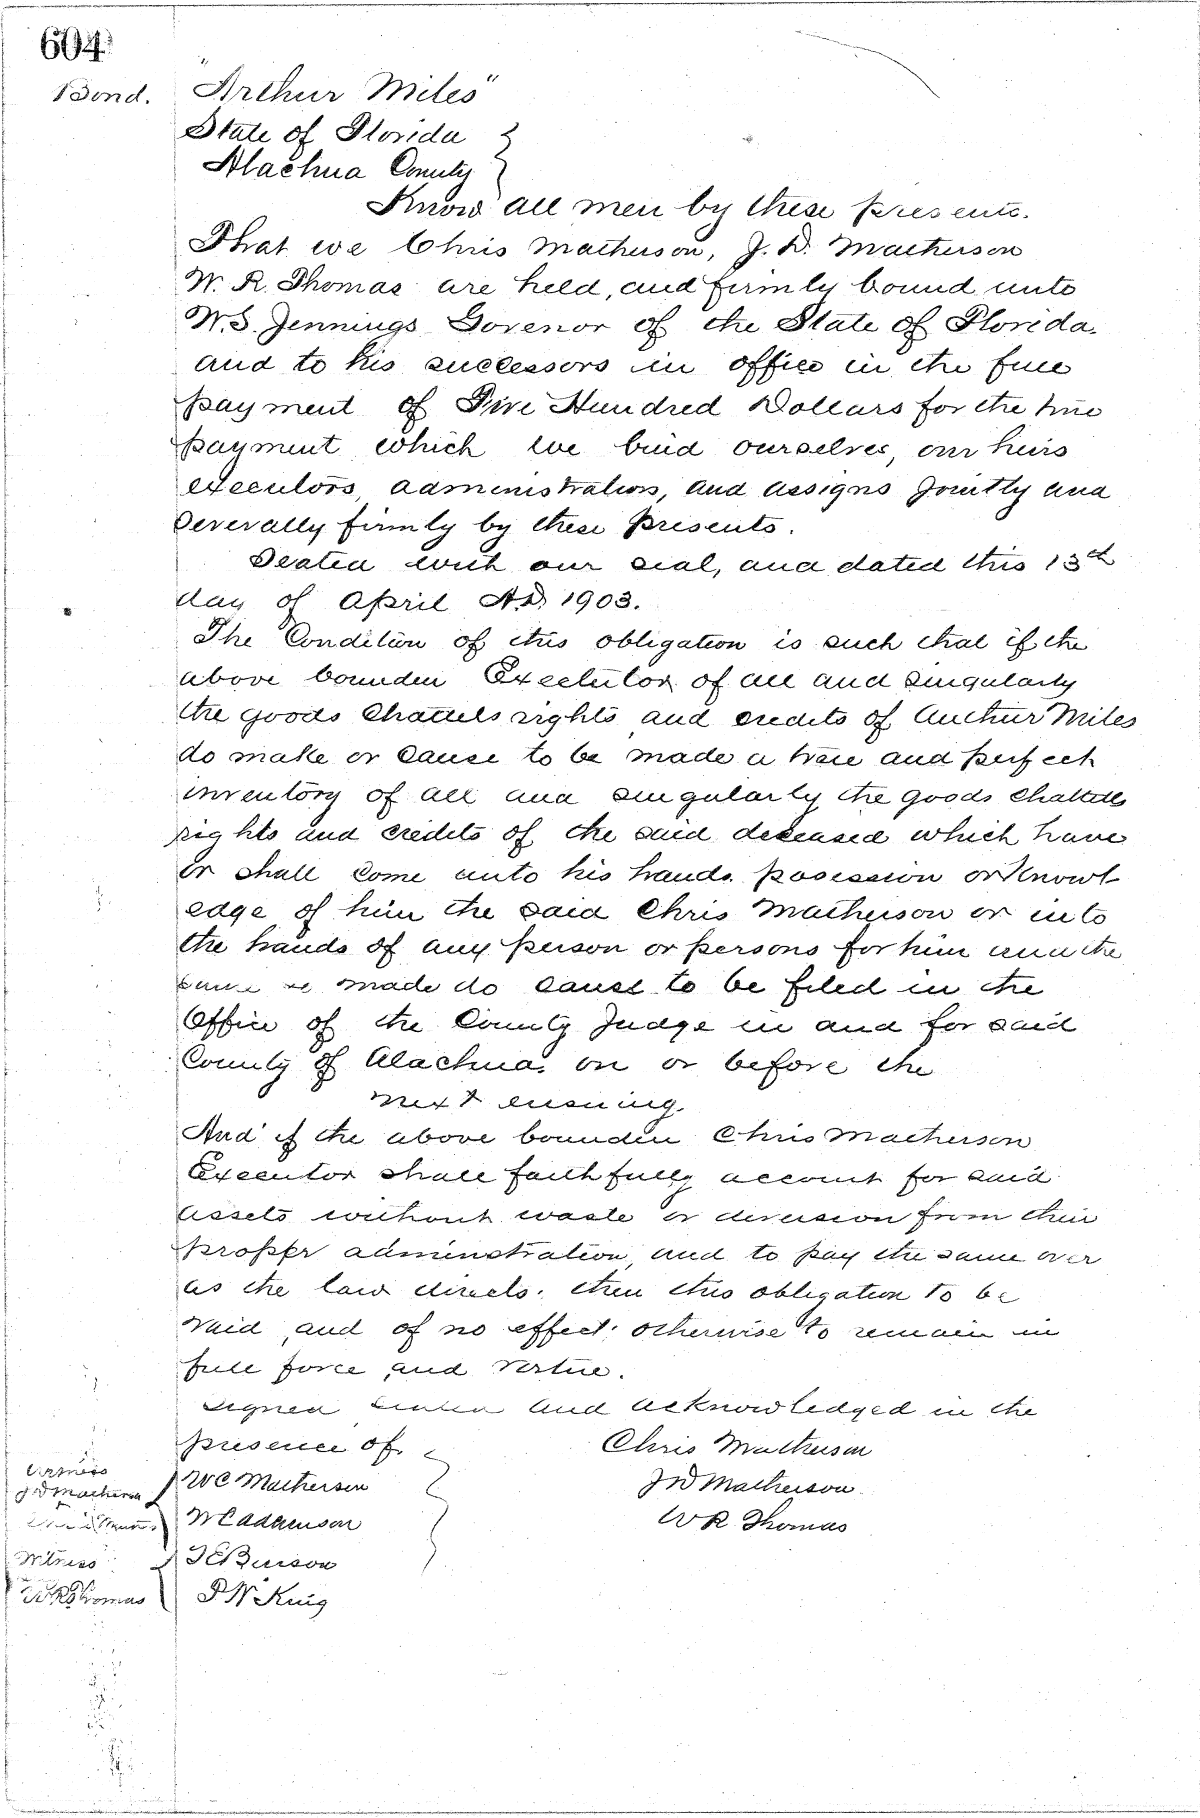 604
Bond. "Arthur Miles"
State of Florida }
Alachua County }
Know all men by these presents.
That we Chris Matherson, J. D. Matherson
W. R. Thomas are held, and firmly bound unto
W. S. Jennings Govenor of the State of Florida.
and to his successors in office in the full
payment of Five Hundred Dollars for the true
payment which we bind ourselves, our heirs
executors, administrators, and assigns jointly and
severally firmly by these presents.
Sealed with our seal, and dated this 13th
day of April A.D. 1903.
The Condition of this obligation is such that if the
above bounden Executor of all and singularly
the goods Chattels rights and credits of Arthur Miles
do make or cause to be made a true and perfect
inventory of all and singularly the goods Chattels
rights and credits of the said deceased which have
or shall come unto his hands posession or Knowl
edge of him the said Chris Matherson or into
the hands of any person or persons for him and the
same so made do cause to be filed in the
Office of the County Judge in and for said
County of Alachua, on or before the
next ensuing.
And if the above bounden Chris Matherson
Executor shall faithfully account for said
assets without waste or diversion from their
propper adminstration, and to pay the same over
as the law directs. then this obligation to be
void, and of no effect; otherwise to remain in
full force, and vertue.
Signed Sealed and acknowledged in the
presence of. Chris Matherson
Witness
J D Matherson W C Matherson J D Matherson
W R Thomas
Witness
W R Thomas P W King